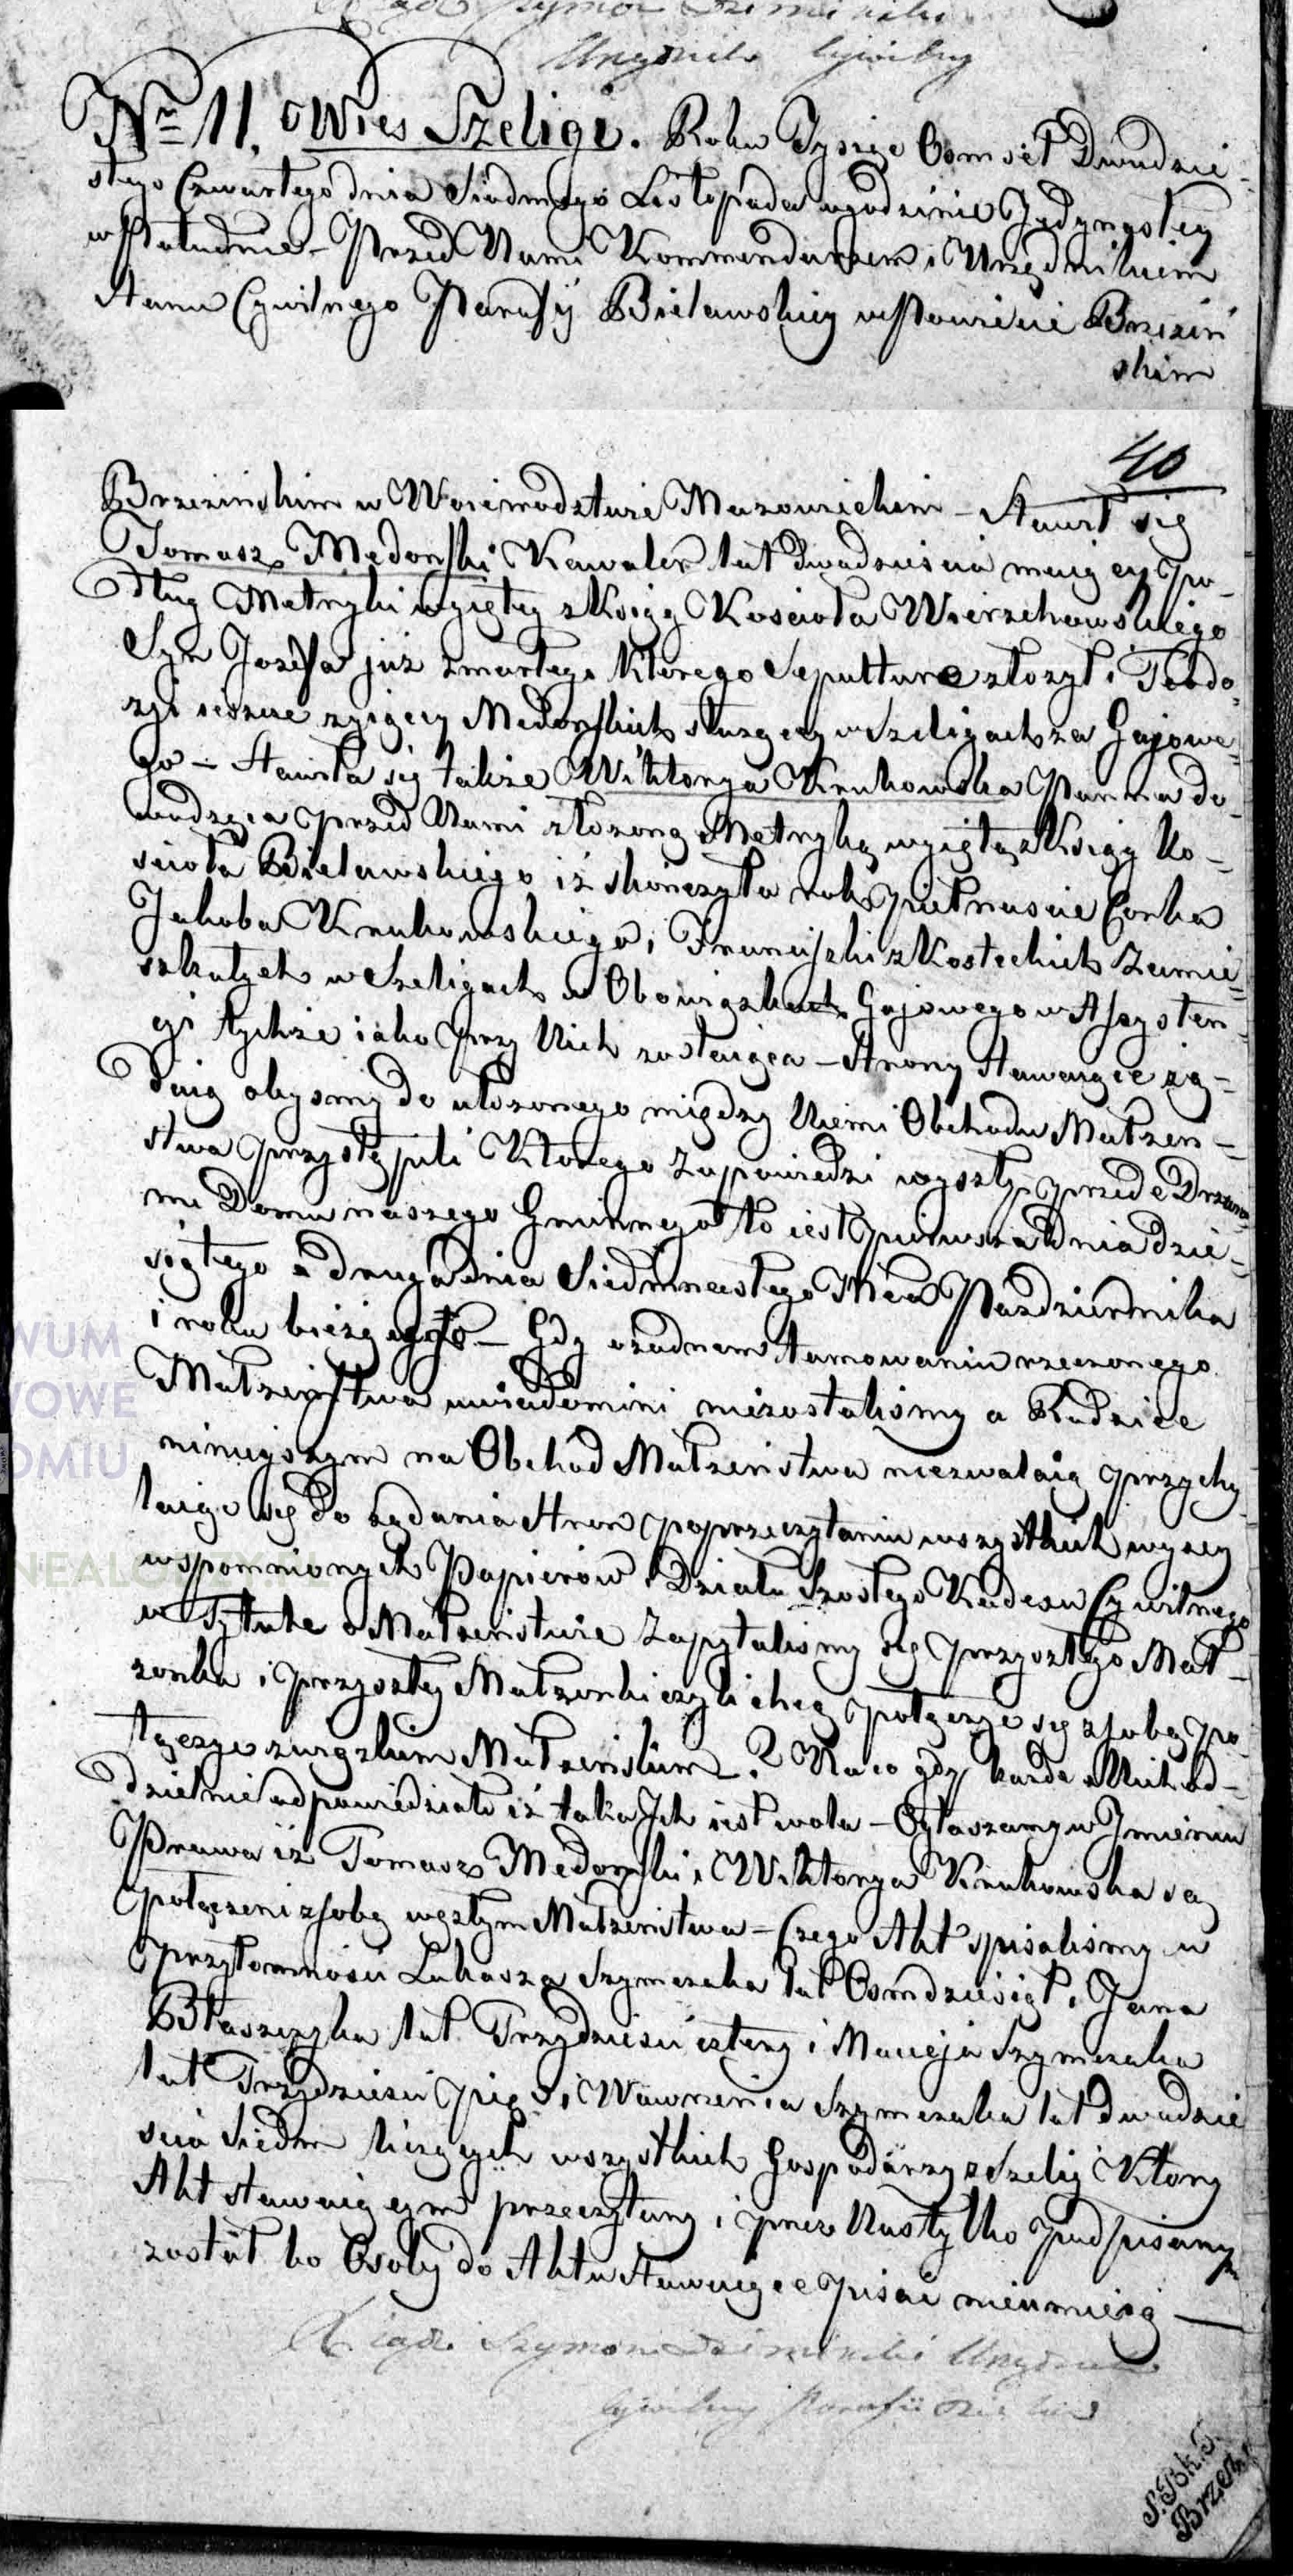 Szymon
Urzędnik Cywilny
Nr 11. Wies Szeligi. Roku Tysiąc Osmset Dwudzie-
stego Czwartego dnia Siodmego Listopada o godzinie Jedynastey
w Południe – Przed Nami Kommendarzem i Urzędnikiem
Stanu Cywilnego Parafij Bielawskiey w Powiecie Brzeziń
skim
40
Brzezinskim w Woiewodztwie Mazowieckim – Stawił się
Tomasz Mędorski Kawaler lat dwadziescia maiący po-
dług Metryki wyiętey z Xsiąg Koscioła Wierzchowskiego
Syn Jozefa już zmarłego Ktorego Sepulturę złożył i Teodo-
zyi ieszcze zyiącey Medorskich słuzący w Szeligach za Gajowe-
go – Stawiła się także Wiktorya Krukowska Panna do-
wodząca przed Nami złożoną Metryką wyiętą z Xsiąg Ko-
scioła Bielawskiego iż skonczyła rok pietnascie Corka
Jakoba Krukowskiego i Franciszki z Kosteckich Zamie-
szkałych w Szeligach w Obowiązkach Gajowego w Assysten-
cyi tychże iako przy Nich zostaiąca – Strony Stawaiące żą-
daią abysmy do ułożonego między Niemi Obchodu Małżen-
stwa przystąpili Ktorego Zapowiedzi wyszły przed Drzwia-
mi Domu naszego Gminnego to iest pierwsza Dnia dzie-
siątego a druga dnia Siedmnastego Mca Pazdziernika
i roku bieżącego – Gdy o żadnem tamowaniu rzeczonego
Małzenstwa uwiadomini niezostalismy a Rodzice
ninieyszym na Obchod Małzenstwa niezwalaią przychy
laiąc się do żądania Stron po przeczytaniu wszystkich wyzey
wspomnionych Papierow i Działu Szostego Kodexu Cywilnego
w Tytule o Małzenstwie Zapytalismy się przyszłego Mał-
żonka i przyszłey Małzonki czyli chcą połączyć się z sobą po-
łączyc związkiem Małzenskim –? Na co gdy każde z Nich od-
dzielnie odpowiedziało iż taka Ich iest wola – Ogłaszamy w Imieniu
Prawa iz Tomasz Medorski i Wiktorya Krukowska są
połączeni z sobą węzłym Małzenstwa – Czego Akt spisalismy w
przytomnosci Łukasza Szymczaka lat Osmdziesiąt i Jana
Błaszczyka lat Trzydziesci cztery i Macieja Szymczaka
lat Trzydziesci pięć i Wawrzenca Szymczaka lat dwadzie
scia Siedm liczących wszystkich Gospodarzy z Szelig Ktory
Akt stawaiącym przeczytany i przez Nas tylko podpisany
został bo Osoby do Aktu Stawaiące pisac nieumieią —
Xiądz Szymon Urzędnik
Cywilny Parafii
WUM
WOWE
OMIU
NEALODZY.PL
S.Pok.P.
Brzez.